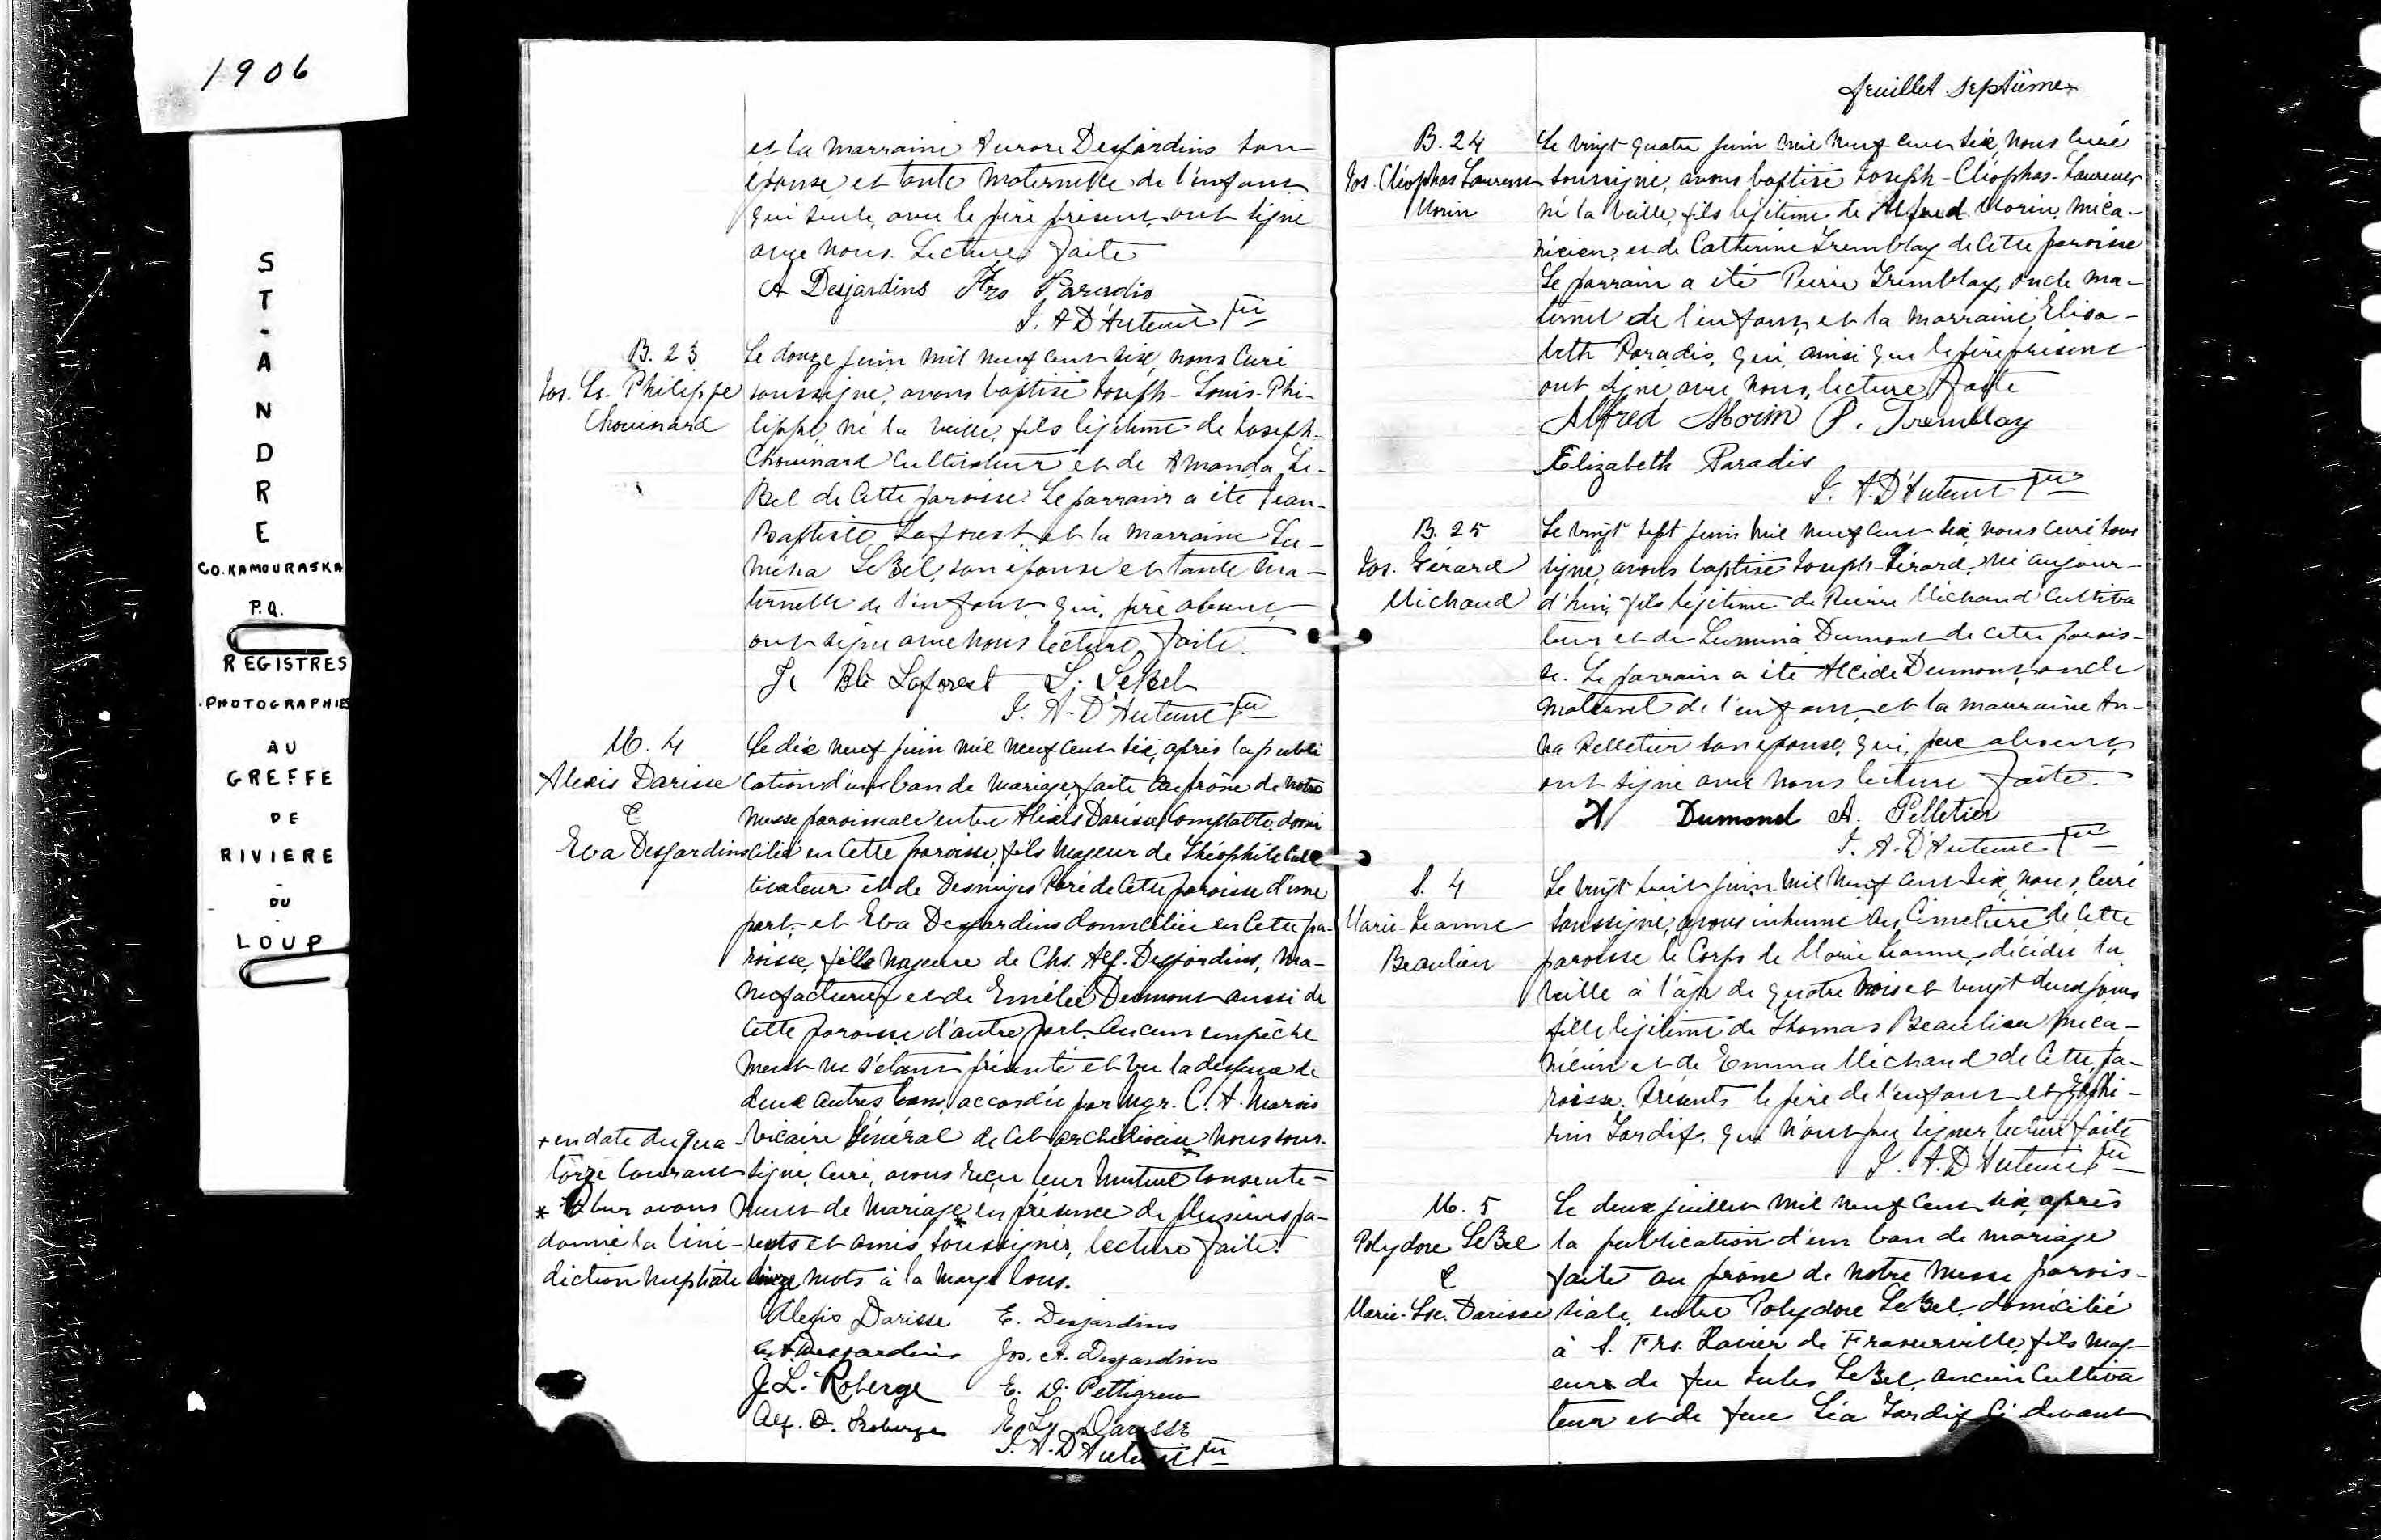 1906
ST-ANDRE
CO. KAMOURASKA
P.Q.
REGISTRES
PHOTOGRAPHIES
AU
GREFFE
DE
RIVIERE
-
DU
-
LOUP
et la marraine Aurore Desjardins son
épouse et tante maternelle de l'enfant
qui seule, avec le père présent, ont signé
avec nous. Lecture faite
A Desjardins Frs Paradis
J. A D'Auteuil Ptr
B. 23
Jos. Ls. Philippe
Chouinard
Le douze juin mil neuf cent six, nous curé
soussigné, avons baptisé Joseph-Louis-Phi-
lippe, né la veille, fils légitime de Joseph
Chouinard cultivateur et de Amanda Le-
Bel de cette paroisse. Le parrain a été Jean-
Baptiste Laforest et la marraine Lu-
mena LeBel, son épouse et tante ma-
ternelle de l'enfant qui, père absent,
ont signé avec nous lecture faite.
J. Bte Laforest L. LeBel
J. A-D'Auteuil Ptr
M. 4
Alexis Darisse
&
Eva Desjardins
Le dix neuf juin mil neuf cent six, après la publi
cation d'un ban de mariage, faite au prône de notre
messe paroissiale entre Alexis Darisse, comptable, domi
cilié en cette paroisse, fils majeur de Théophile cul
tivateur et de Desneiges Paré de cette paroisse d'une
part, et Eva Desjardins domiciliée en cette pa-
roisse, fille majeure de Chs. Alf. Desjardins, ma-
nufacturier et de Emélie Dumont aussi de
cette paroisse d'autre part. Aucun empêche
ment ne s'étant présenté et vu la dispense de
deux autres bans, accordée par Mgr. C. A. Marois
vicaire Général de cet archidiocèse nous sous-
signé, Curé, avons reçu leur mutuel consente-
ment de mariage * en présence de plusieurs pa-
rents et amis soussignés, lecture faite.
mots à la marge bons.
+ en date du qua-
torze courant
* & leur avons
donné la béné-
diction nuptiale
Alexis Darisse E. Desjardins
C. A. Desjardins Jos. A. Desjardins
J. L. Roberge E. D. Pettigrew
Alf. O. Roberge E. Ls Darisse
J. A-D'Auteuil Ptr
feuillet septième
B. 24
Jos. Cléophas Laurent
Morin
Le vingt quatre juin mil neuf cent six, nous curé
soussigné, avons baptisé Joseph-Cléophas-Laurent
né la veille, fils légitime de Alfred Morin, méca-
nicien, et de Catherine Tremblay de cette paroisse
Le parrain a été Pierre Tremblay, oncle ma-
ternel de l'enfant, et la marraine Elisa-
beth Paradis, qui, ainsi que le père présent
ont signé avec nous, lecture faite
Alfred Morin P. Tremblay
Elizabeth Paradis
J. A. D'Auteuil Ptr
B. 25
Jos. Gérard
Michaud
Le vingt sept juin mil neuf cent six, nous curé sous
signé, avons baptisé Joseph-Gérard, né aujour-
d'hui, fils légitime de Pierre Michaud cultiva
teur et de Lumina Dumont de cette parois-
se. Le parrain a été Alcide Dumont, oncle
maternel de l'enfant, et la marraine An-
na Pelletier son épouse, qui, père absent,
ont signé avec nous lecture faite.
Dumond A. Pelletier
J. A-D'Auteuil Ptr
S. 4
Marie-Jeanne
Beaulieu
Le vingt huit juin mil neuf cent six, nous, curé
soussigné, avons inhumé au cimetière de cette
paroisse le corps de Marie Jeanne, décédée la
veille à l'âge de quatre mois et vingt deux jours
fille légitime de Thomas Beaulieu méca-
nicien et de Emma Michaud de cette pa-
roisse. Présents le père de l'enfant et Zéphi-
rin Tardif, qui n'ont pu signer, lecture faite
J. A. D'Auteuil Ptr
M. 5
Polydore LeBel
&
Marie-Lse. Darisse
Le deux juillet mil neuf cent six, après
la publication d'un ban de mariage
faite au prône de notre messe parois-
siale, entre Polydore LeBel, domicilié
à S. Frs. Xavier de Fraserville, fils maj-
eur de feu Jules LeBel, ancien cultiva
teur et de feue Léa Tardif ci devant